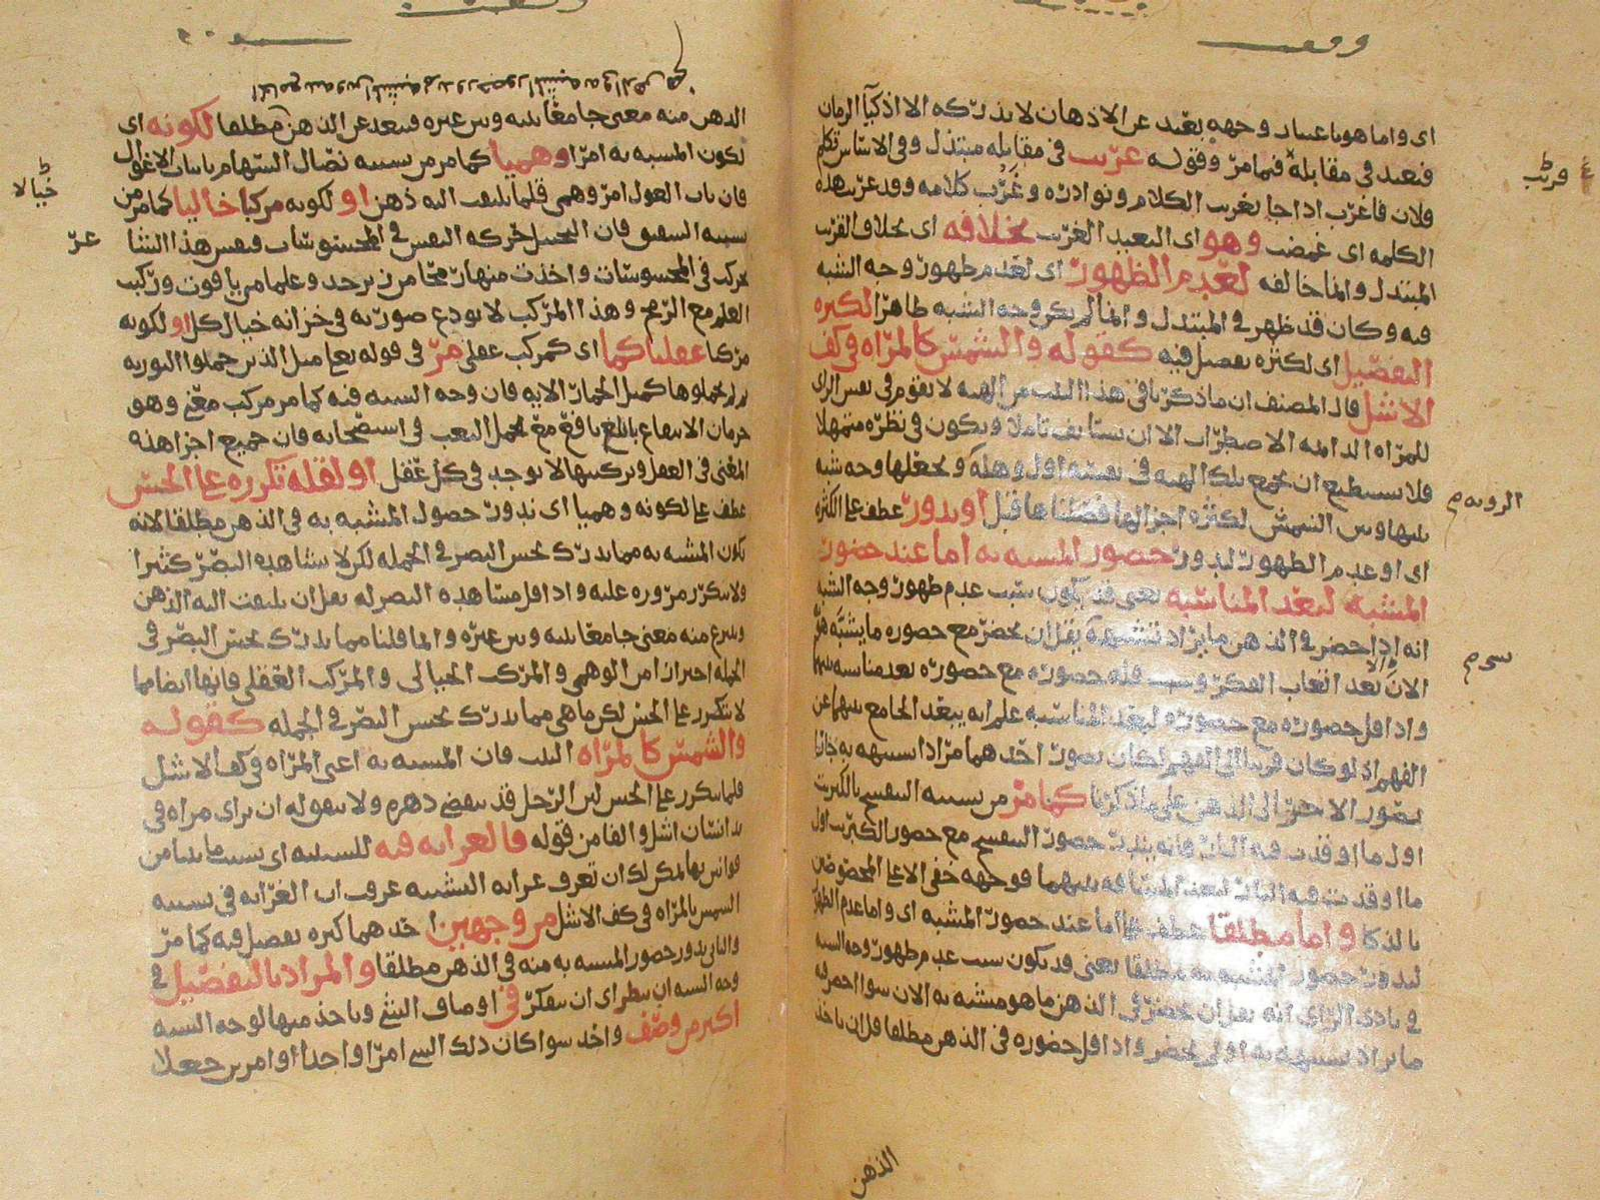 اى واما هو باعتبار وجهه بعيد عن الاذهان لا يدركه الا اذكيآ الزمان
فبعيد فى مقابلة فيما مرّ وقوله غريب فى مقابله مبتذل وفى الاساس تكلم
فلان فاغرب اذا جا بغريب الكلام ونوادره وغَرُب كلامه وقد غربت هذه
الكلمه اى غمضت وهو اى البعيد الغريب بخلافه اى بخلاف القريب
المبتدل وانما خالفه لعدم الظهور اى لعدم ظهور وجه الشبه
فيه وكان قد ظهر فى المبتدل وانما لم يكن وجه الشبه ظاهرا لكثره
التفصيل اى لكثره تفصيل فيه كقوله والشمس كالمرآه فى كف
الاشل قال المصنف ان ما ذكرنا فى هذا البيت من الهيه لا يقوم فى نفس الراى
للمرآه الدايمه الاضطراب الا ان يستانف تاملا ويكون فى نظره متمهلا
فلا يستطيع ان يجمع تلك الهيه فى نفسه اول وهله ويجعلها وجه شبه
بينها وبين الشمس لكثره اجزائها فضلنا ها قبل او ندور عطف على الكثره
اى او عدم الظهور لندور حضور المشبه به اما عند حضور
المشبه لبعد المناسبه يعنى قد يكون سبب عدم ظهور وجه الشبه
انه اذا حضر فى الذهن ما يراد تشبيهه يقل ان يحضر مع حضوره ما يشبّه هوّ
الان بعد اتعاب الفكر وسبب قله حضوره مع حضوره بعد مناسبه بينهما
واذا قل حضوره مع حضوره لبعد المناسبه علم انه يبعد الجامع بينهما عن
الفهم اذ لو كان قريبا الى الفهم لكان تصور احدهما مرادا تشبيهه به جاذبا
تصور الاخر الى الذهن على ما ذكرنا كما مرّ من تشبيه البنفسج بالكبريت
اول ما اوقدت فيه النار فانه يندر حضور البنفسج مع حضور الكبريت اول
ما اوقدت فيه النار لبعد المسافه بينهما فوجهه خفى الا على المخصوصين
بالذكا واما مطلقا عطف على اما عند حضور المشبه اى واما عدم الظهور
لندور حضور المشبه به مطلقا يعنى وقد يكون سبب عدم ظهور وجه الشبه
فى بادى الراى انه يقل ان يحضر فى الذهن ما هو مشبه به الان سوا احضر فيه
ما يراد تشبيهه به او لم يحضر واذا قل حضوره فى الذهن مطلقا قل ان ياخذ
الذهن
قريب
الرويه م
س م
الذهن منه معنى جامعا بينه وبين غيره فيبعد عن الذهن مطلقا لكونه اى
لكون المشبه به امرا وهميا كما مر من تشبيه نصال السهام بانياب الاغوال
فان ناب الغول امر وهمى قلما يلتفت اليه ذهن او لكونه مركبا خياليا كما مر من
تشبيه الشقيق فان التخيل حركه النفس فى المحسوسات فنفس هذا الشا
تحركت فى المحسوسات واخذت منها رماحا من زبرجد وعلما من ياقوت وركبت
العلم مع الرمح وهذا المركب لا يودع صورته فى خزانه خيال كل او لكونه
مركبا عقليا كما اى كمركب عقلى مرّ فى قوله تعا مثل الذين حملوا التوريه
ثم لم يحملوها كمثل الحمار الايه فان وجه الشبه فيه كما مر مركب معنى وهو
حرمان الانتفاع بابلغ نافع مع تحمل التعب فى استصحابه فان جميع اجزا هذه
المعنى فى العقل وتركيبها لا يوجد فى كل عقل او لقله تكرره على الحس
عطف على لكونه وهميا اى ندور حصول المشبه به فى الذهن مطلقا لانه
يكون المشبه به مما يدرك بحس البصر فى الجمله لكن لا يشاهده البصر كثيرا
ولا يتكرر مروره عليه واذا قل مشاهده البصر له يقل ان يلتفت اليه الذهن
وينتزع منه معنى جامعا بينه وبين غيره وانما قلنا مما يدرك بحس البصر فى
الجمله احترازا من الوهمى والمركب الخيالى والمركب العقلى فانها ايضا مما
لا يتكرر على الحس لكن ما هى مما يدرك بحس البصر فى الجمله كقوله
والشمس كالمرآه البيت فان المشبه به اعنى المرآه فى كف الاشل
قلما يتكرر على الحس لان الرجل قد ينقضى دهره ولا يتفق له ان يرى مرآه فى
يد انسان اشل والفا من قوله فالغرابه فيه للسببيه اى بسبب ما بينا من
قوانينها يمكن لك ان تعرف غرابه التشبيه عرفت ان الغرابه فى تشبيه
الشمس بالمرآه فى كف الاشل من وجهين احدهما كثره تفصيل فيه كما مرّ
والثانى ندور حضور المشبه به منه فى الذهن مطلقا والمراد بالتفصيل فى
وجه الشبه ان ينظر اى ان يتفكر فى اوصاف الشى وياخذ منها لوجه الشبه
اكثر من وصف واحد سوا كان ذلك الشى امرا واحدا او امرين جعلا